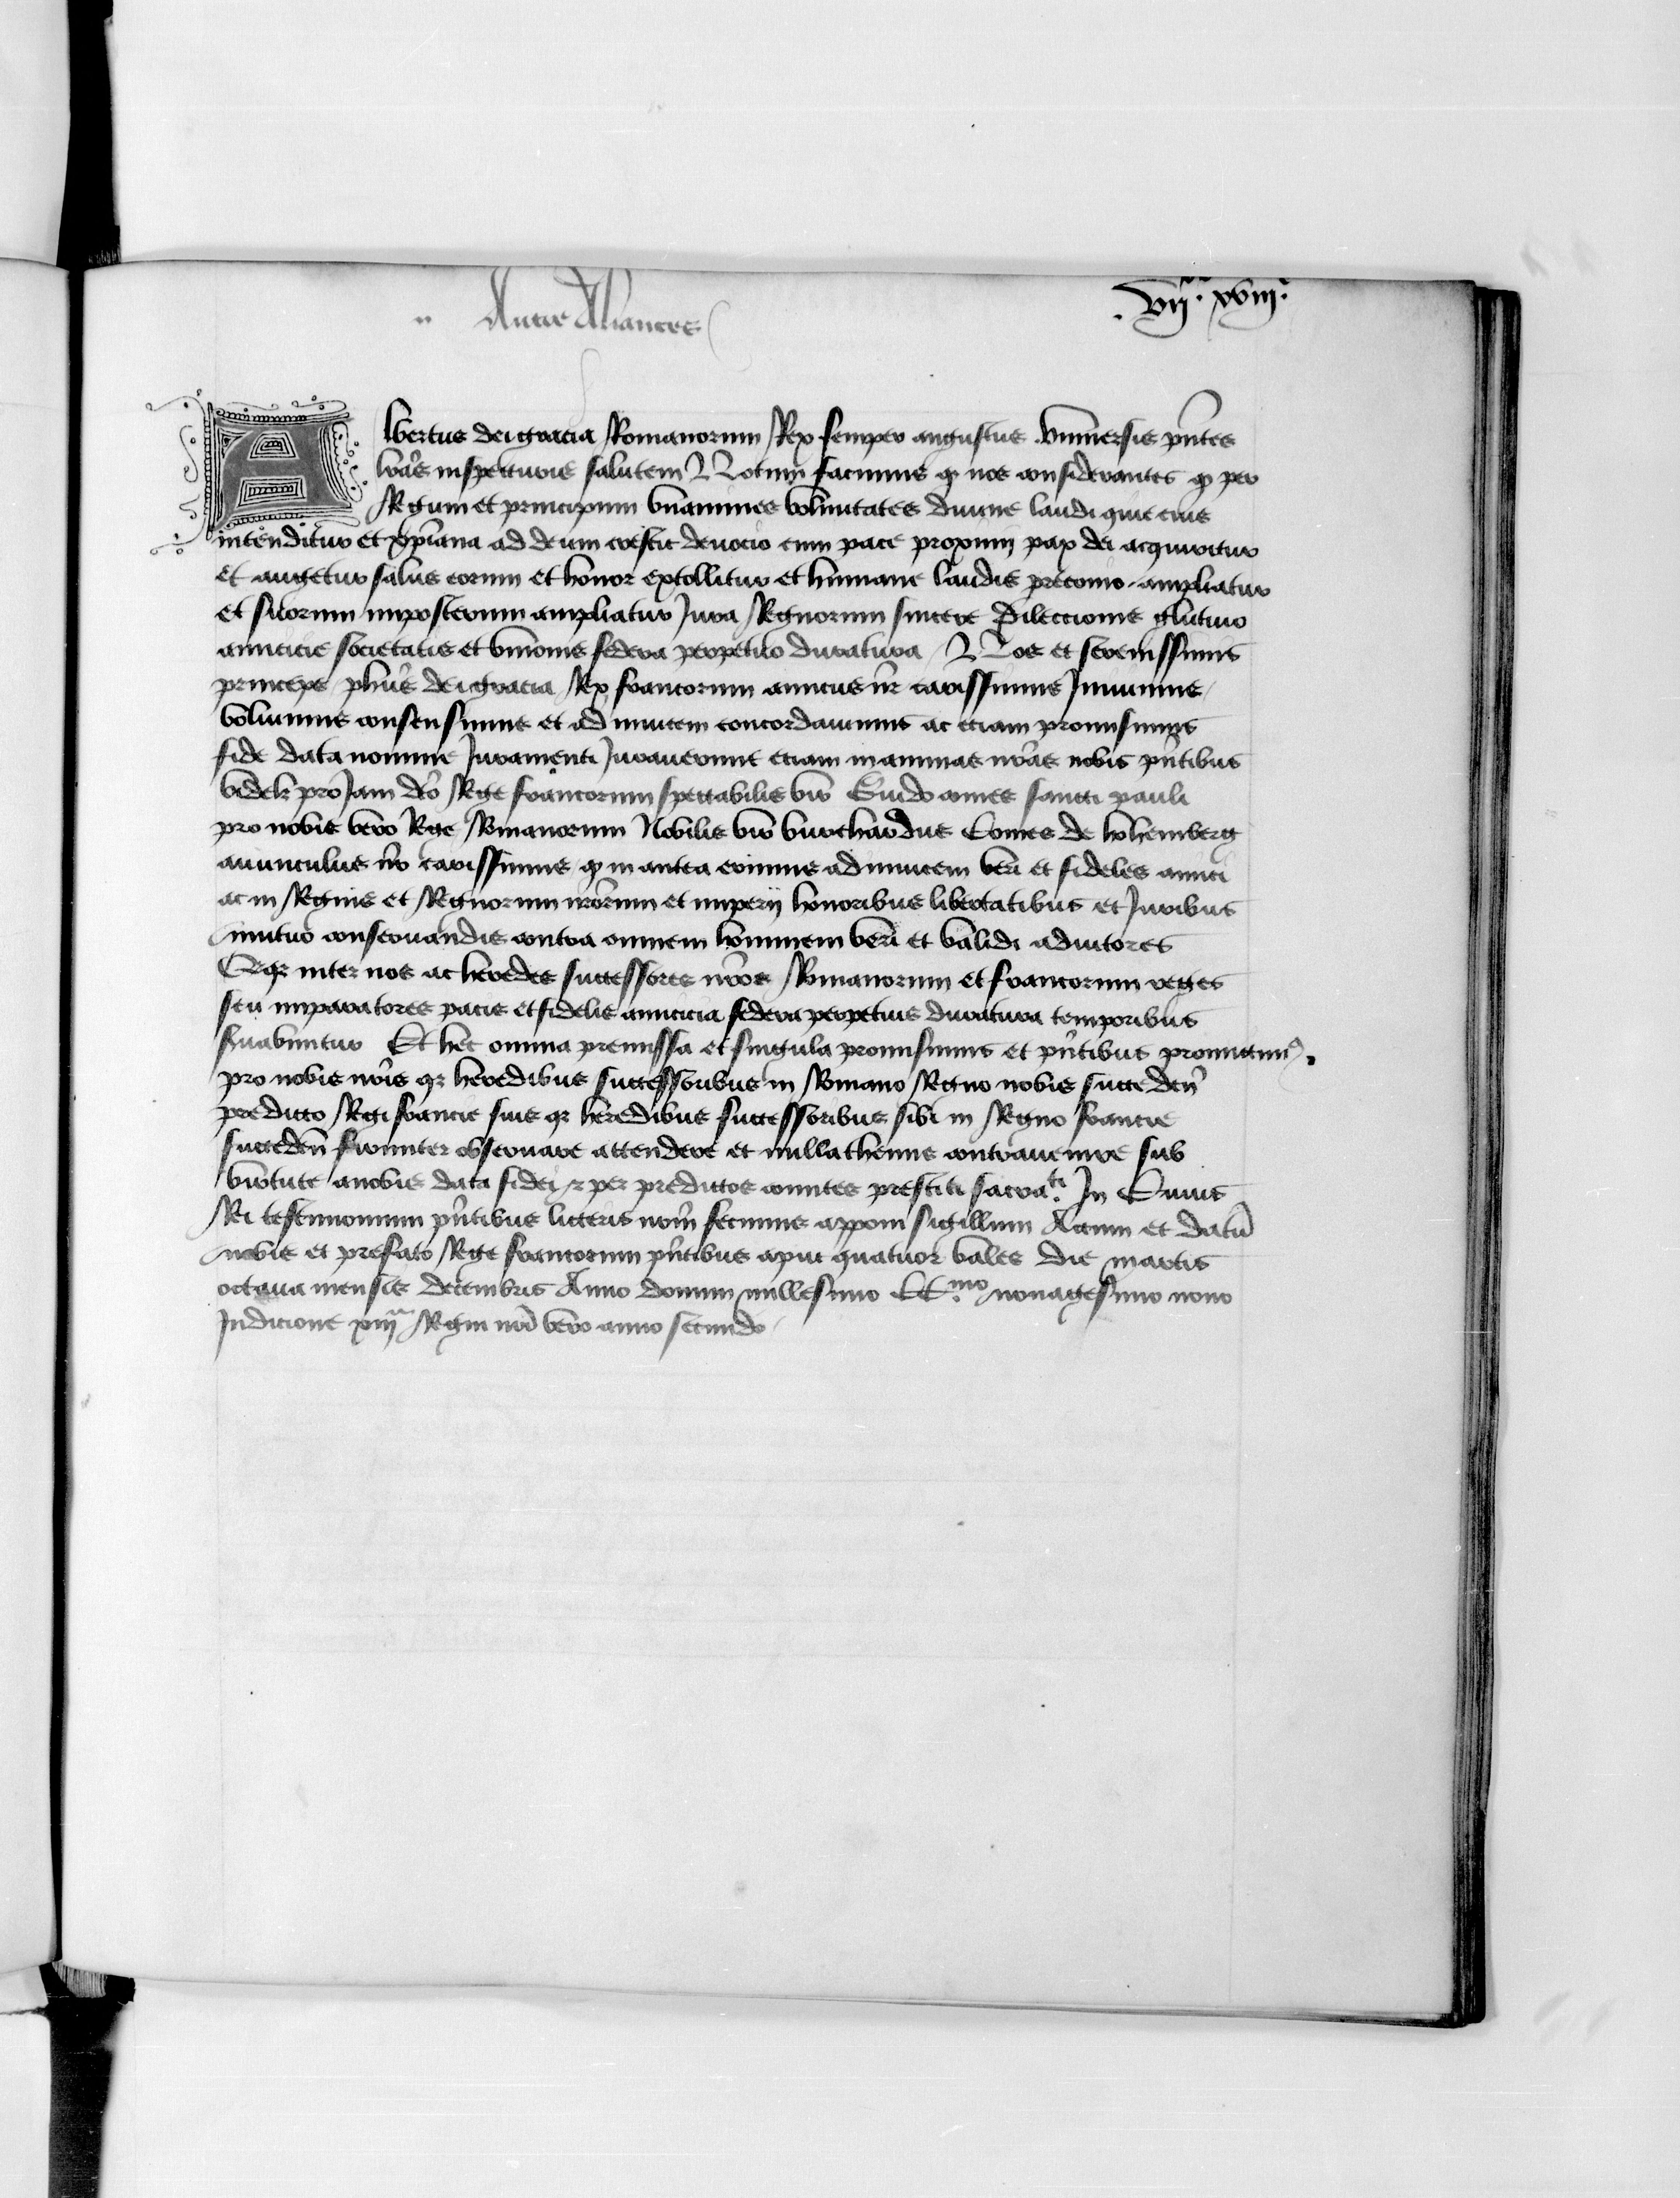 Autre Aliances
.vijxx. xviij.
Albertus dei gracia Romanorum Rex semper augustus vniuersis pn̄tes
lrās inspecturis salutem Notum facimus qȝ nos considerantes qȝ per
Regum et principum vnanimes voluntates diuine laudi que eius
intenditur et xp̄iana ad deum crescit deuocio cum pace proximi pax dei acquiritur
et augetur salus eorum et honor extollitur et humane laudis preconio ampliatur
et suorum imposterum ampliatur Jura Regnorum sincere dileccionis glutino
amicicie societatis et vnionis federa perpetuo duratura Nos et serenissimus
princeps ph̄us dei gracia Rex francorum amicus nr̄ carissimus Iniuimus
voluimus consensimus et ad inuicem concordauimus ac eciam promisimus
fide data nomine Juramenti Jurauerunt eciam in animas nrās nobis pn̄tibus
videlȝ pro Jam dc̄o Rege francorum spectabilis vir Guido comes sancti pauli
pro nobis vero Rege Romanorum Nobilis vir burchardus Comes de hohemberg
auunculus nr̄ carissimus qȝ in antea erimus adinuicem veri et fideles amici
ac in Regnis et Regnorum nrōrum et imperij honoribus libertatibus et Juribus
mutuo conseruandis contra omnem hominem veri et validi adiutores
Erqȝ inter nos ac heredes successores nrōs Romanorum et francorum reges
seu imparatores pacis et fidelis amicicia federa perpetuis duratura temporibus
suabuntur Et hec omnia premissa et singula promisimus et pn̄tibus promittimꝰ
pro nobis nrīs qȝ heredibus successoribus in Romano Regno nobis succeden̄
predicto Regi francie suis qȝ heredibus successoribus sibi in Regno francie
succeden̄ firmiter obseruare attendere et nullathenus contrauenire sub
virtute a nobis data fidei et per predictos comites prestiti sacrati. In Cuius
Rei testimonium pn̄tibus litteris nrm̄ fecimus apponi sigillum Actum et datū
nobis et prefato Rege francorum pn̄tibus aput quatuor valles die martis
octaua mensis decembris Anno domini millesimo CCmo nonagesimo nono
Indicione xiija Regni nrī vero anno secundo